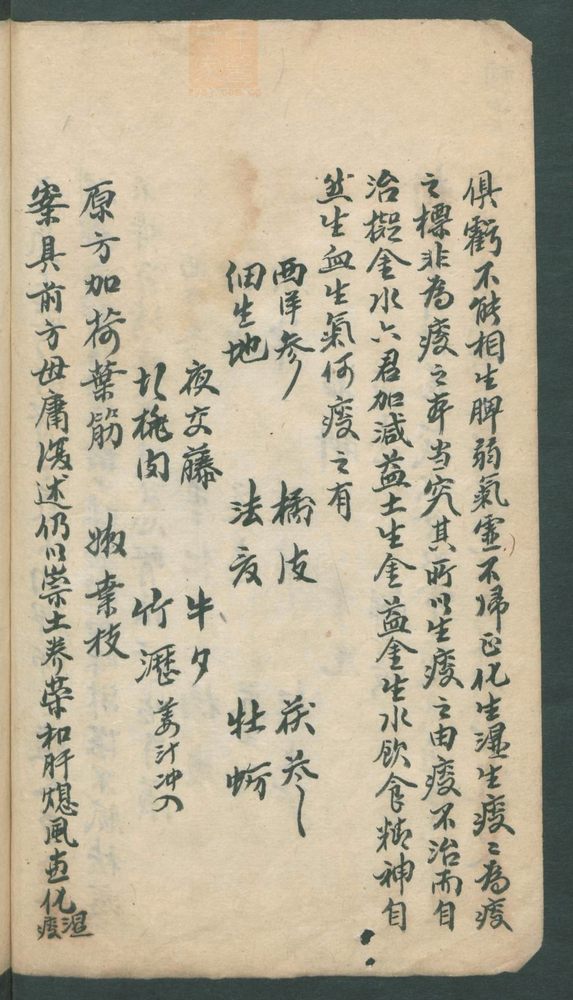 俱虧不能相生脾弱氣虛不歸正化生濕生痰〻為痰
之標非為痰之本当究其所以生痰之由痰不治而自
治擬金水六君加減益土生金益金生水飲食精神自
然生血生氣何痰之有
西洋參 橘皮 茯苓
細生地 法夏 牡蠣
夜交藤 牛夕
胡桃肉 竹瀝 姜汁冲入
原方加荷葉筋 嫩桑枝
案具前方毋庸復述仍以崇土养榮和肝熄風直化濕痰